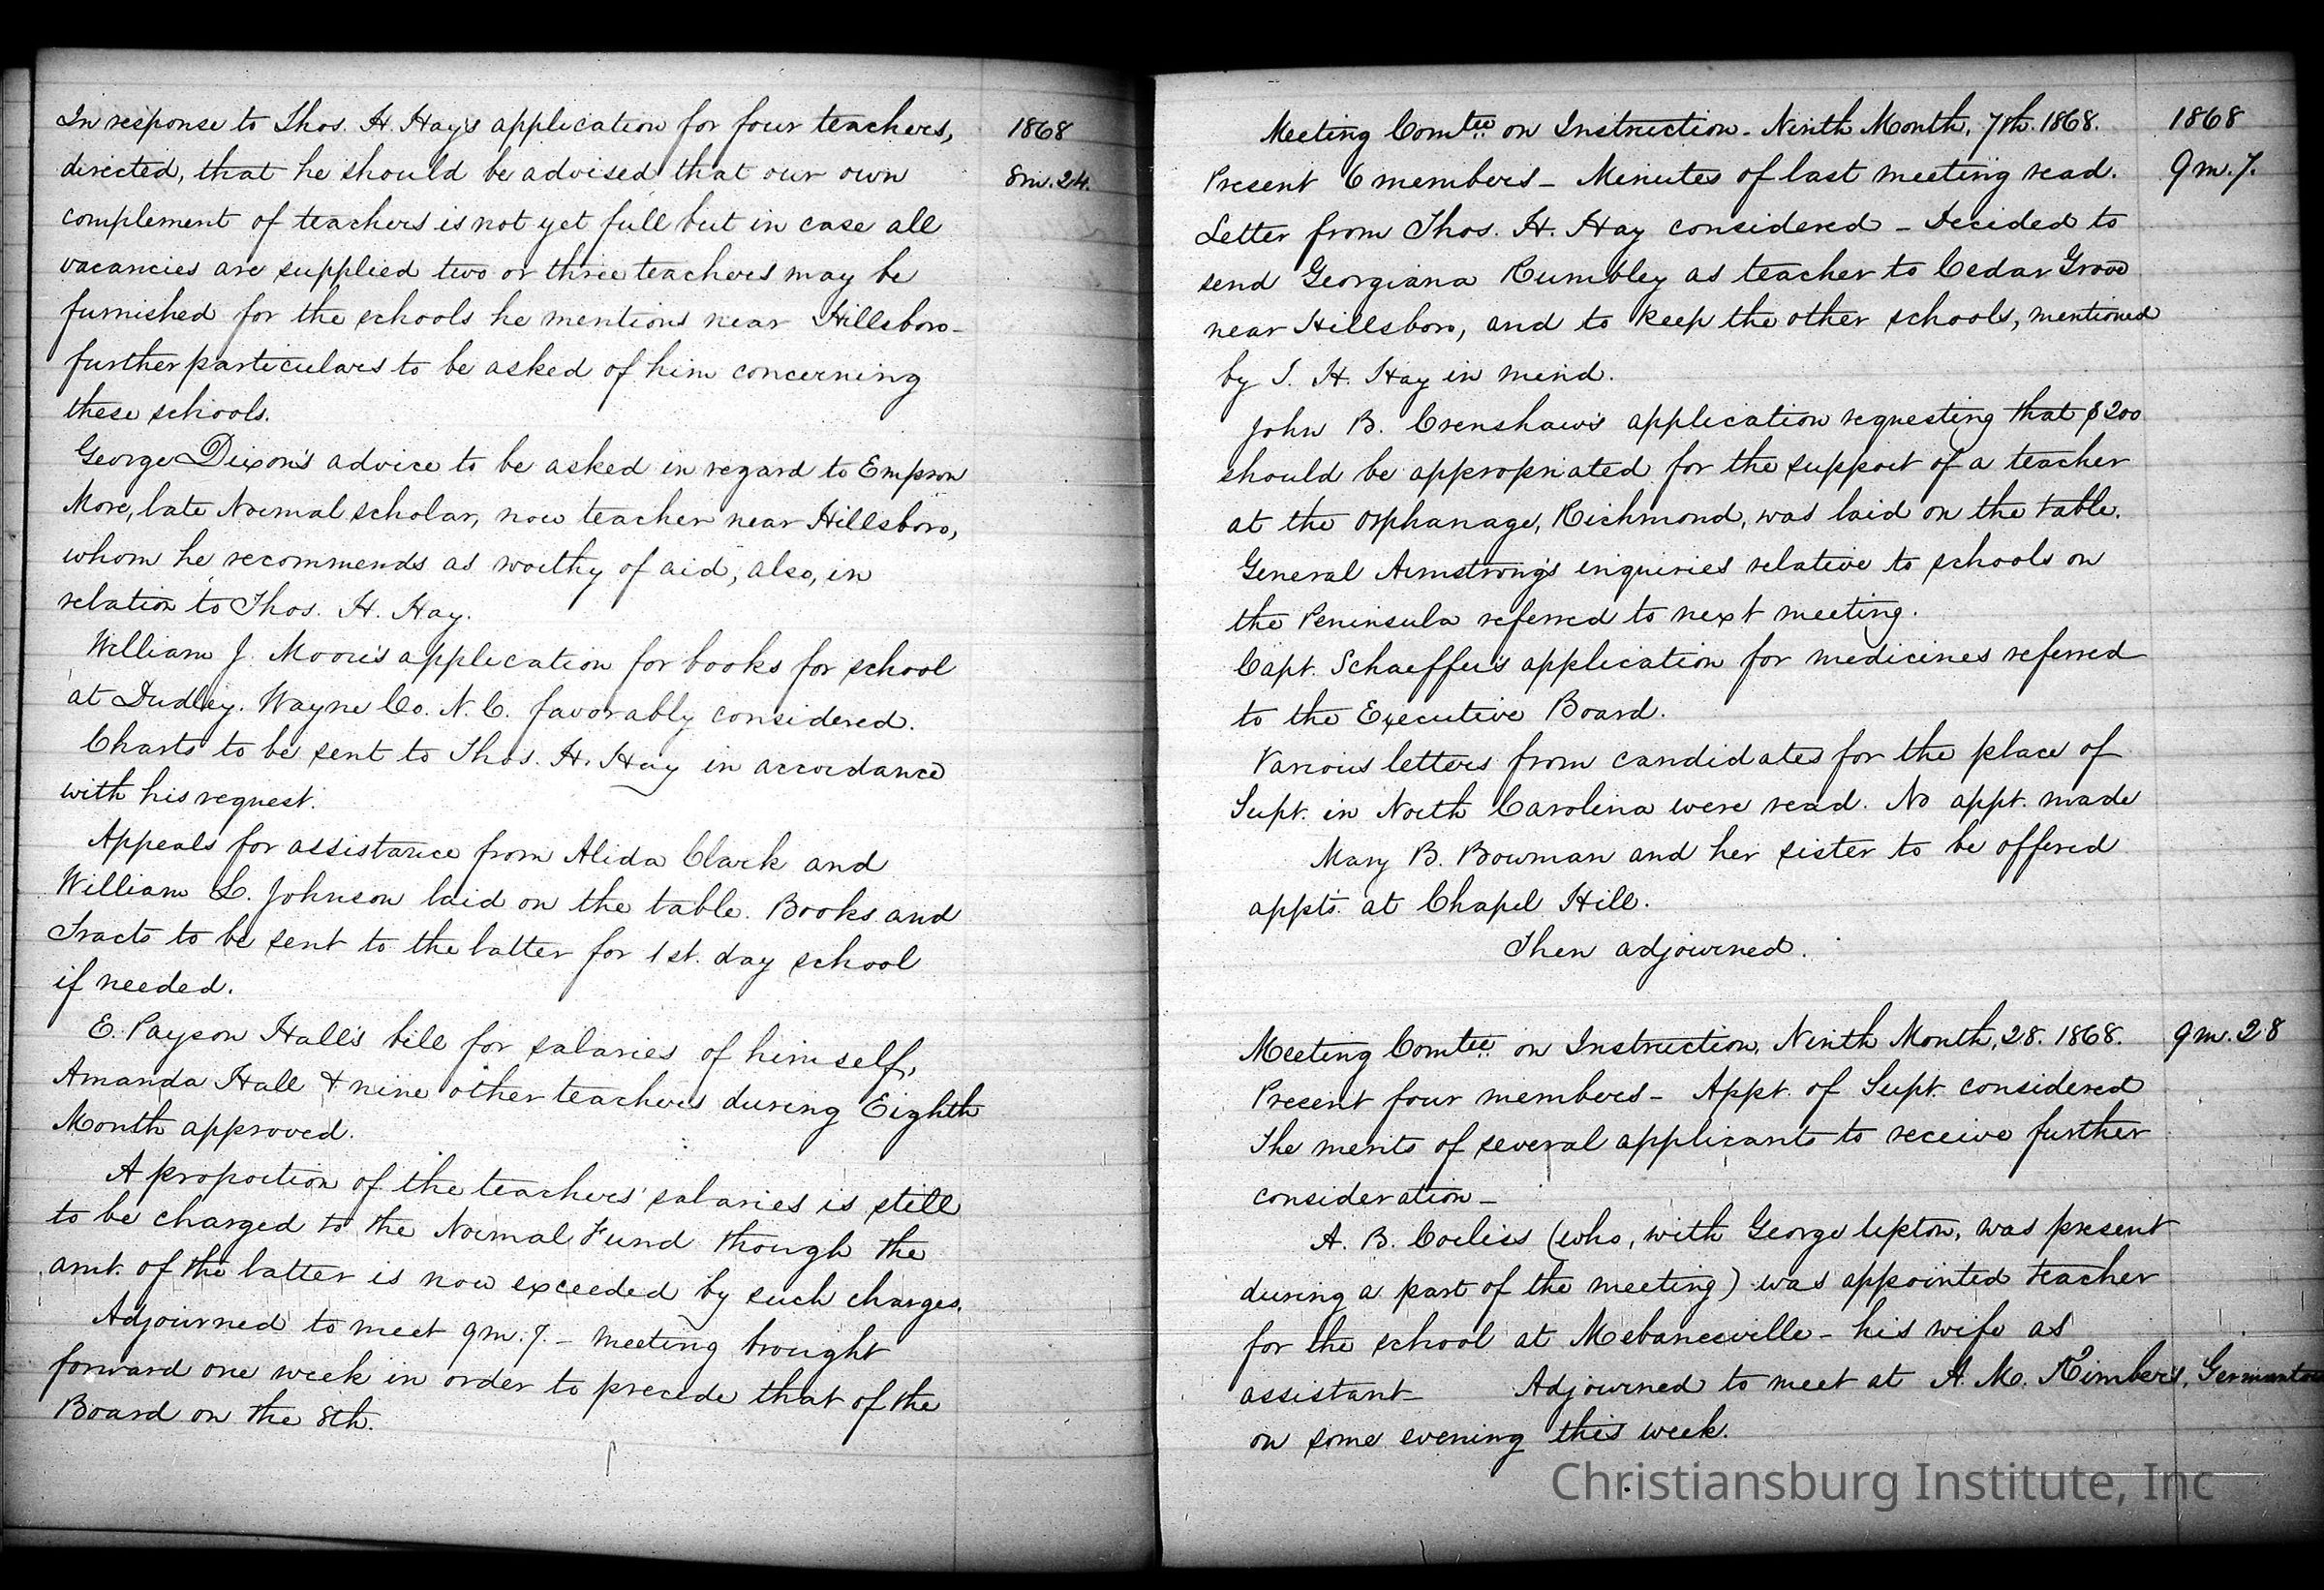 In response to Thos. H. Hay's application for four teachers,
1868
directed, that he should be advised that our own
8m.24.
complement of teachers is not yet full but in case all
vacancies are supplied two or three teachers may be
furnished for the schools he mentions near Hillsboro-
further particulars to be asked of him concerning
these schools.
George Dixon's advice to be asked in regard to Empson
More, late Normal scholar, now teacher near Hillsboro,
whom he recommends as worthy of aid; also, in
relation to Thos. H. Hay.
William J. Moore's application for books for school
at Dudley. Wayne Co. N.C. favorably considered.
Charts to be sent to Thos. H. Hay in accordance
with his request.
Appeals for assistance from Alida Clark and
William L. Johnson laid on the table. Books and
Tracts to be sent to the latter for 1st. day school
if needed.
E. Payson Hall's bill for salaries of himself,
Amanda Hall & nine other teachers during Eighth
Month approved.
A proportion of the teachers' salaries is still
to be charged to the Normal Fund though the
amt. of the latter is now exceeded by such charges.
Adjourned to meet 9m.7. - meeting brought
forward one week in order to precede that of the
Board on the 8th.
Meeting Comtee. on Instruction - Ninth Month, 7th. 1868.
1868
Present 6 members - Minutes of last meeting read.
9m.7.
Letter from Thos. H. Hay considered - Decided to
send Georgiana Rumbley as teacher to Cedar Grove
near Hillsboro, and to keep the other schools, mentioned
by T. H. Hay in mind.
John B. Crenshaw's application requesting that $200
should be appropriated for the support of a teacher
at the Orphanage, Richmond, was laid on the table.
General Armstrong's inquiries relative to schools on
the Peninsula referred to next meeting.
Capt. Schaeffer's application for medicines referred
to the Executive Board.
Various letters from candidates for the place of
Supt. in North Carolina were read. No appt. made
Mary B. Bowman and her sister to be offered
appts. at Chapel Hill.
Then adjourned.
Meeting Comtee. on Instruction, Ninth Month, 28. 1868.
9m.28
Present four members - Appt. of Supt. considered
The merits of several applicants to receive further
consideration -
A. B. Corliss (who, with George Upton, was present
during a part of the meeting) was appointed teacher
for the school at Mebanesville - his wife as
assistant - Adjourned to meet at A. M. Kimber's, Germantown
on some evening this week.
Christiansburg Institute, Inc